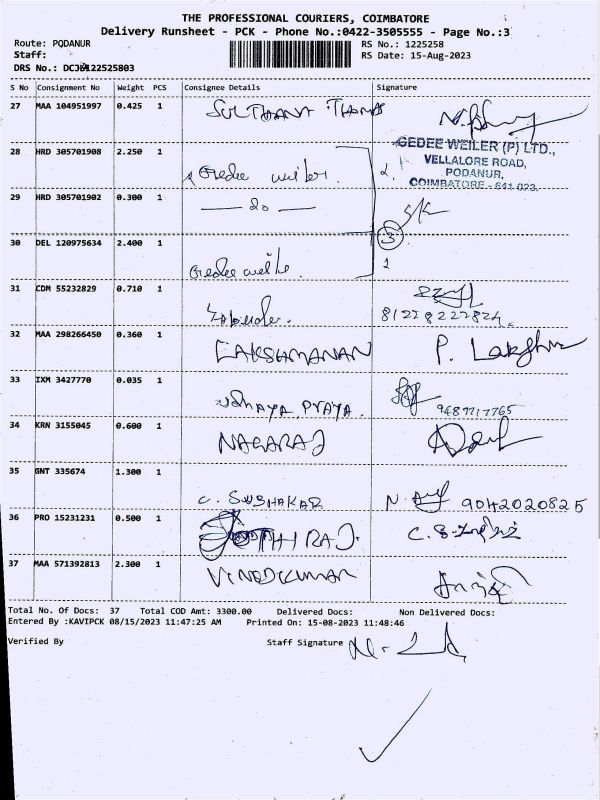 THE PROFESSIONAL COURIERS, COIMBATORE
Delivery Runsheet - PCK - Phone No.:0422-3505555 - Page No.:3
Route: PODANUR
RS No.: 1225258
Staff:
RS Date: 15-Aug-2023
DRS No.: DCJ0122525803
S No Consignment No Weight PCS Consignee Details Signature
27 MAA 104951997 0.425 1 SULTHANA
GEDEE WEILER (P) LTD.,
VELLALORE ROAD,
PODANUR,
COIMBATORE - 641 023.
28 HRD 305701908 2.250 1 Gedee weiler. 2.
29 HRD 305701902 0.300 1 — do —
3
30 DEL 120975634 2.400 1 Gedee 1
31 CDM 55232829 0.710 1 8122822782
32 MAA 298266450 0.360 1 LAKSHMANAN P. Lakshm
33 IXM 3427770 0.035 1 UDHAYA PRAYA. 9487717765
34 KRN 3155045 0.600 1 NAGARAJ
35 GNT 335674 1.300 1 C. SUDHAKAR 9042020825
36 PRO 15231231 0.500 1 JOTHIRAJ.
37 MAA 571392813 2.300 1 VINODKUMAR
Total No. Of Docs: 37 Total COD Amt: 3300.00 Delivered Docs: Non Delivered Docs:
Entered By :KAVIPCK 08/15/2023 11:47:25 AM Printed On: 15-08-2023 11:48:46
Verified By Staff Signature